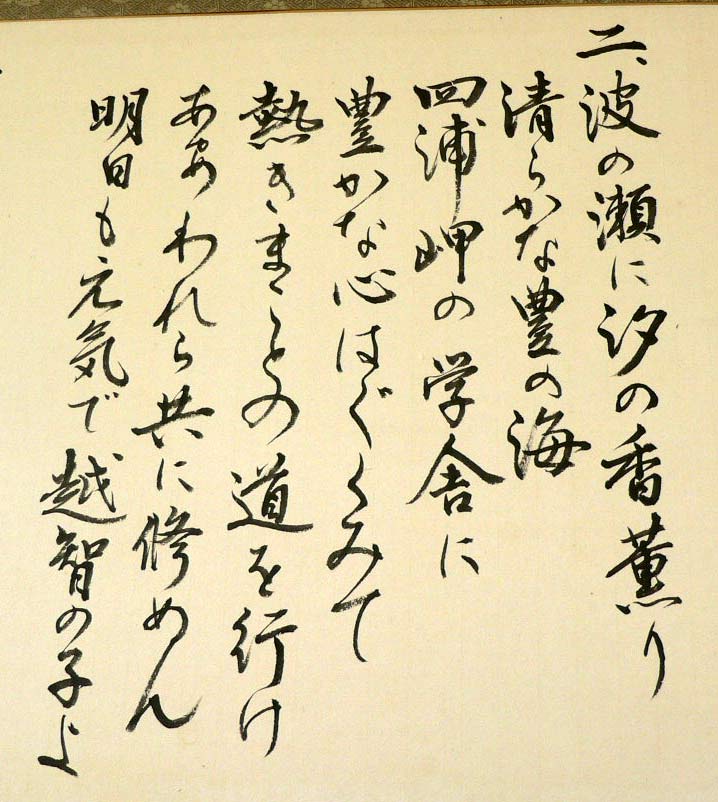 二、波の瀬に汐の香薫り
清らかな豊の海
四浦岬の学舎に
豊かな心はぐくみて
熱きまことの道を行け
ああわれら共に修めん
明日も元気で越智の子よ